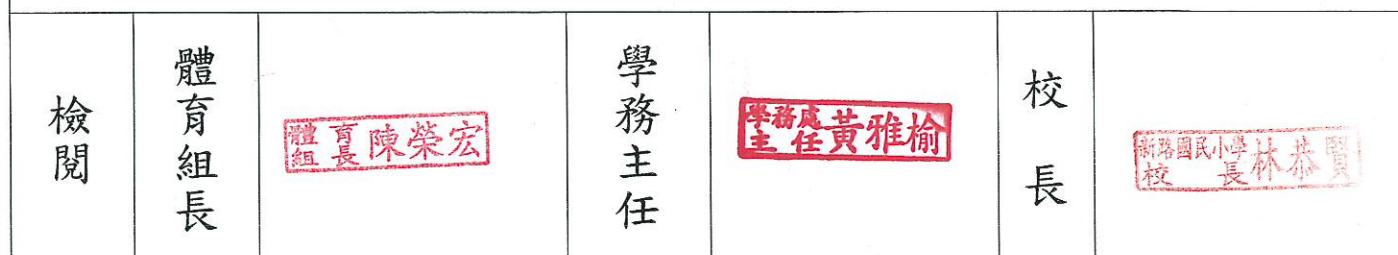 檢閱
體育組長
體育組長 陳榮宏
學務主任
學務處主任 黃雅榆
校長
新路國民小學校長 林恭賢